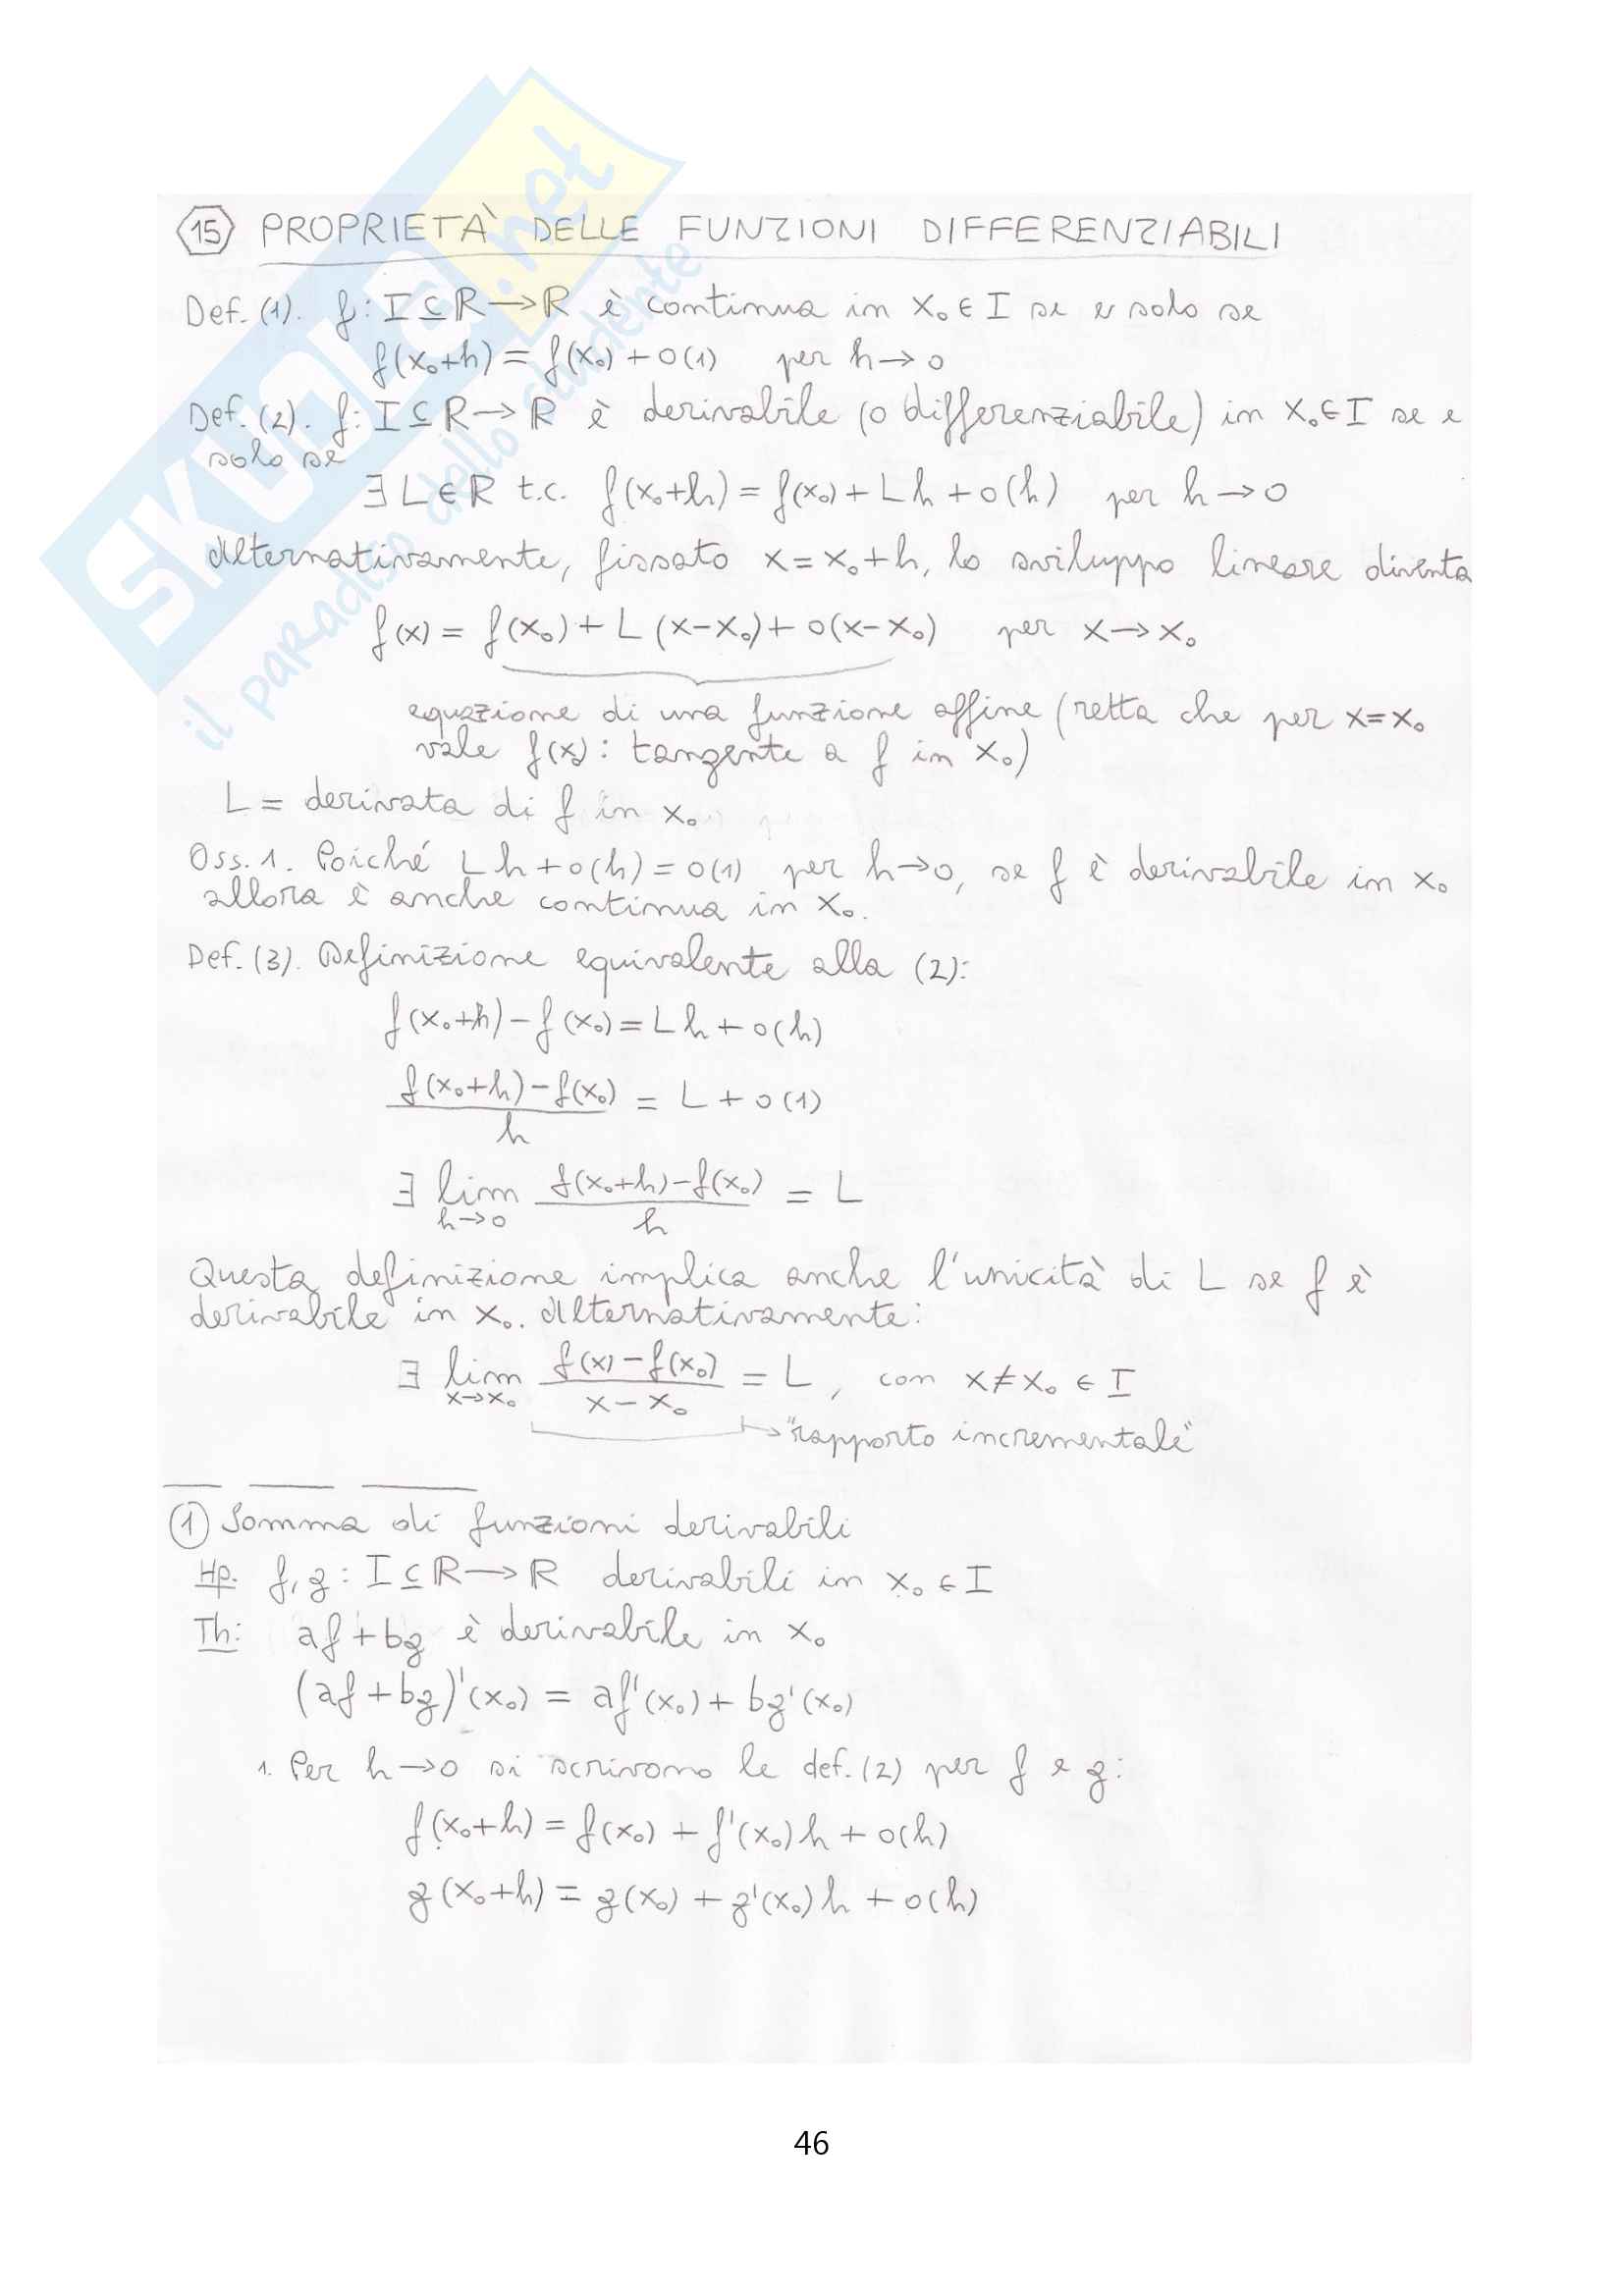 15 PROPRIETÀ DELLE FUNZIONI DIFFERENZIABILI
Def. (1). f: I ⊆ ℝ → ℝ è continua in x₀ ∈ I se e solo se
f(x₀+h) = f(x₀) + o(1) per h → 0
Def. (2). f: I ⊆ ℝ → ℝ è derivabile (o differenziabile) in x₀ ∈ I se e
solo se
∃ L ∈ ℝ t.c. f(x₀+h) = f(x₀) + Lh + o(h) per h → 0
Alternativamente, fissato x = x₀+h, lo sviluppo lineare diventa
f(x) = f(x₀) + L (x-x₀) + o(x-x₀) per x → x₀
equazione di una funzione affine (retta che per x = x₀
vale f(x₀): tangente a f in x₀)
L = derivata di f in x₀
Oss. 1. Poiché Lh + o(h) = o(1) per h → 0, se f è derivabile in x₀
allora è anche continua in x₀.
Def. (3). Definizione equivalente alla (2):
f(x₀+h) - f(x₀) = Lh + o(h)
(f(x₀+h) - f(x₀))/h = L + o(1)
∃ lim h→0 (f(x₀+h) - f(x₀))/h = L
Questa definizione implica anche l'unicità di L se f è
derivabile in x₀. Alternativamente:
∃ lim x→x₀ (f(x) - f(x₀))/(x - x₀) = L, con x ≠ x₀ ∈ I
→ "rapporto incrementale"
1 Somma di funzioni derivabili
Hp. f, g: I ⊆ ℝ → ℝ derivabili in x₀ ∈ I
Th: af + bg è derivabile in x₀
(af + bg)'(x₀) = af'(x₀) + bg'(x₀)
1. Per h → 0 si scrivono le def. (2) per f e g:
f(x₀+h) = f(x₀) + f'(x₀)h + o(h)
g(x₀+h) = g(x₀) + g'(x₀)h + o(h)
46
SKUOLA.net
il paradiso dello studente